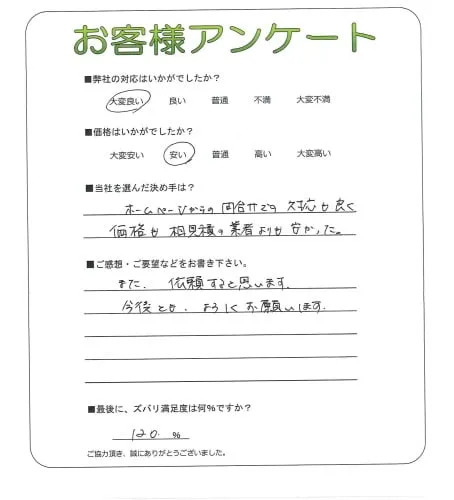 お客様アンケート
■弊社の対応はいかがでしたか？
大変良い 良い 普通 不満 大変不満
■価格はいかがでしたか？
大変安い 安い 普通 高い 大変高い
■当社を選んだ決め手は？
ホームページからの問合せでの対応も良く
価格も相見積の業者よりも安かった。
■ご感想・ご要望などをお書き下さい。
また、依頼すると思います。
今後とも、よろしくお願いします。
■最後に、ズバリ満足度は何％ですか？
120. %
ご協力頂き、誠にありがとうございました。